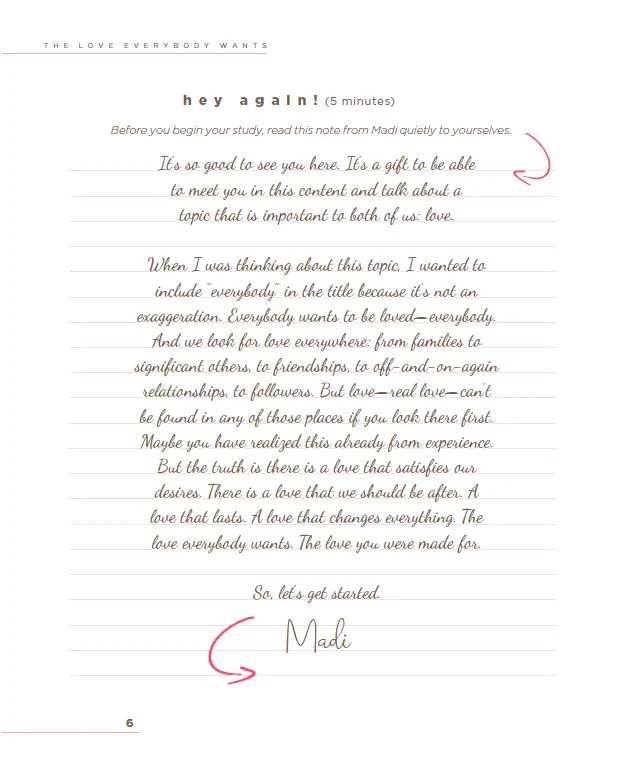 THE LOVE EVERYBODY WANTS
hey again! (5 minutes)
Before you begin your study, read this note from Madi quietly to yourselves.
It's so good to see you here. It's a gift to be able
to meet you in this content and talk about a
topic that is important to both of us: love.
When I was thinking about this topic, I wanted to
include "everybody" in the title because it's not an
exaggeration. Everybody wants to be loved—everybody.
And we look for love everywhere: from families to
significant others, to friendships, to off-and-on-again
relationships, to followers. But love—real love—can't
be found in any of those places if you look there first.
Maybe you have realized this already from experience.
But the truth is there is a love that satisfies our
desires. There is a love that we should be after. A
love that lasts. A love that changes everything. The
love everybody wants. The love you were made for.
So, let's get started.
Madi
6